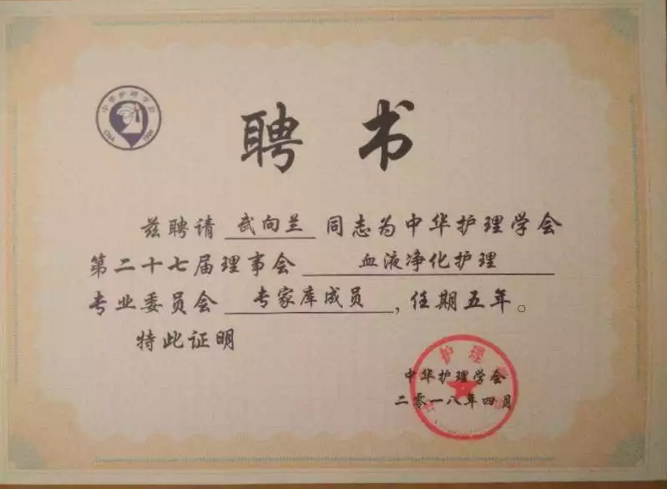 中华护理学会
CNA 1909
聘书
兹聘请 武向兰 同志为中华护理学会
第二十七届理事会 血液净化护理
专业委员会 专家库成员，任期五年。
特此证明
中华护理学会
二零一八年四月